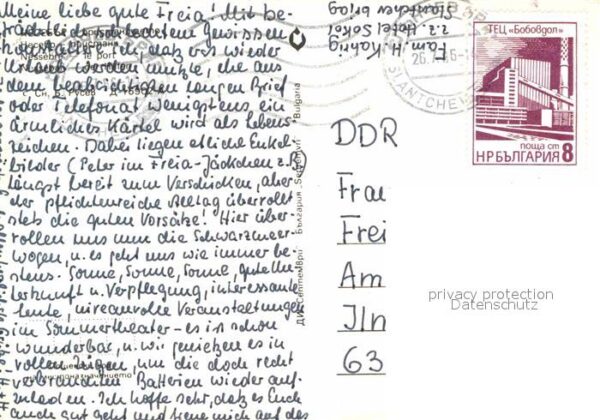 Meine liebe gute Freia! Mit be-
trächtlich schlechtem Gewissen
stelle ich, daß erst wieder
Urlaub werden mußte, ehe aus
dem beabsichtigten langen Brief
oder Telefonat wenigstens ein
ärmliches Kärtel wird als Lebens-
zeichen. Dabei liegen etliche Enkel-
bilder (Peter im Freia-Jäckchen z.B.)
längst bereit zum Verschicken, aber
der pflichtenreiche Alltag überrollt
stets die guten Vorsätze! Hier über-
rollen uns nun die Schwarzmeer-
wogen, u. es geht uns wie immer be-
stens. Sonne, Sonne, Sonne, gute Un-
terkunft u. Verpflegung, interessante
Leute, niveauvolle Veranstaltungen
im Sommertheater - es ist schon
wunderbar, u. wir genießen es in
vollen Zügen, um die doch recht
verbrauchten Batterien wieder auf-
zuladen. Ich hoffe sehr, daß es Euch
auch gut geht und freue mich auf das
Nessebre
le port
България
Bulgaria
Fam. H.
z.Z. Hotel Sokol
Slantchev briag
SLANTCHEV
ТЕЦ „Бобовдол"
поща ст 8
НРБЪЛГАРИЯ
DDR
Frau
Frei
Am
Ilm
63
privacy protection
Datenschutz